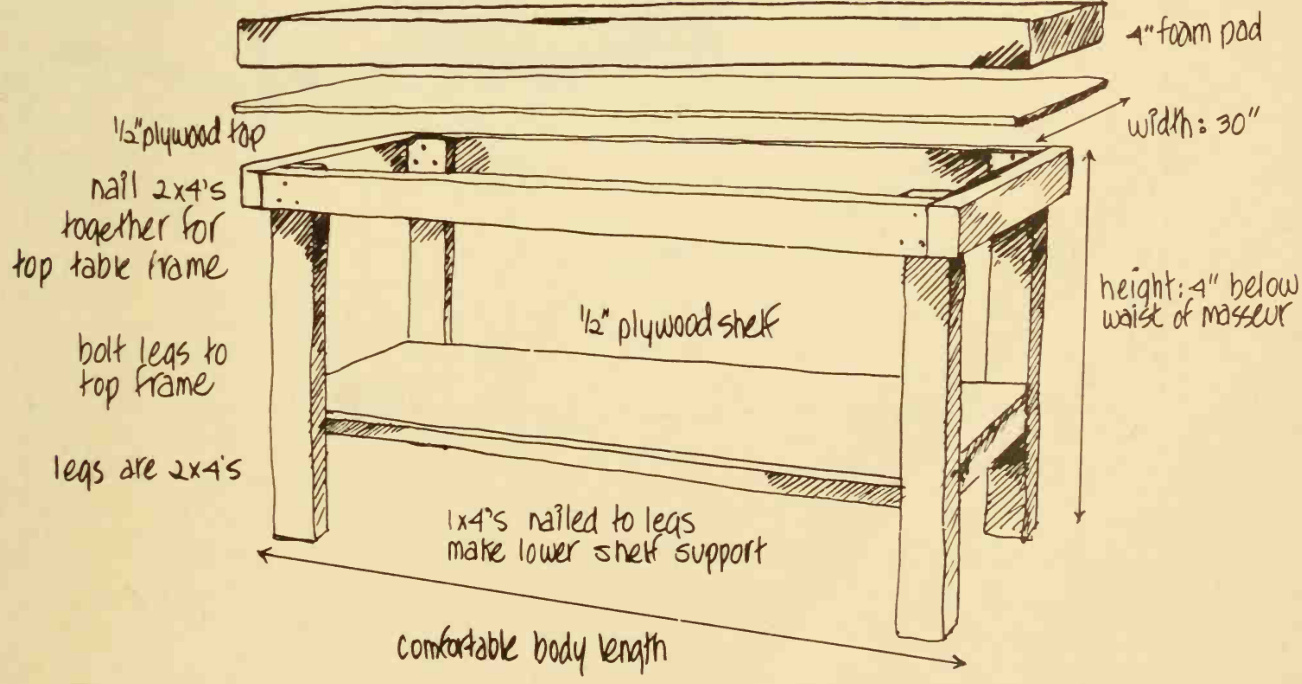 4" foam pad
width: 30"
1/2" plywood top
nail 2x4's
together for
top table frame
height: 4" below
waist of masseur
1/2" plywood shelf
bolt legs to
top frame
legs are 2x4's
1x4's nailed to legs
make lower shelf support
comfortable body length